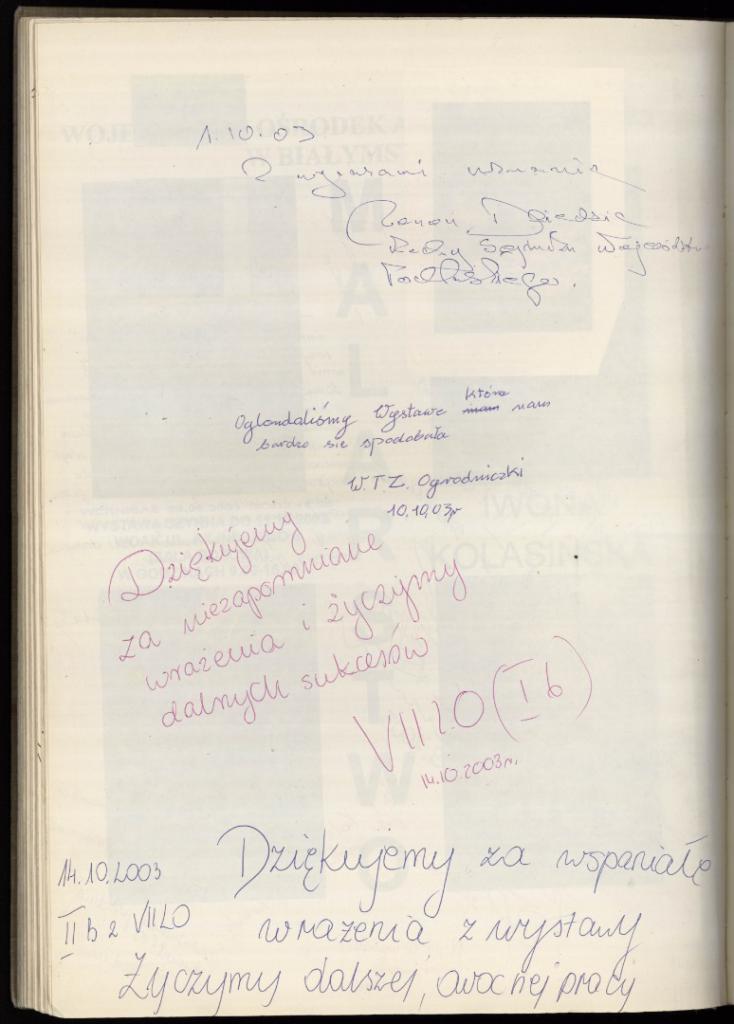 1.10.03
Z wyrazami uznania
Dziedzic
Radny Sejmiku Województwa
Podlaskiego.
Oglondaliśmy Wystawe która nam
bardzo sie spodobała
W.T.Z. Ogrodniczki
10.10.03r
Dziękujemy
za niezapomniane
wrażenia i życzymy
dalnych sukcesów
VII LO (I b)
14.10.2003r.
14.10.2003 Dziękujemy za wspaniałe
II b z VII LO wrażenia z wystawy
Życzymy dalszej, owocnej pracy
WOJE OŚRODEK
W BIAŁYMS
MALARSTWO
IWONA
KOLASIŃSK